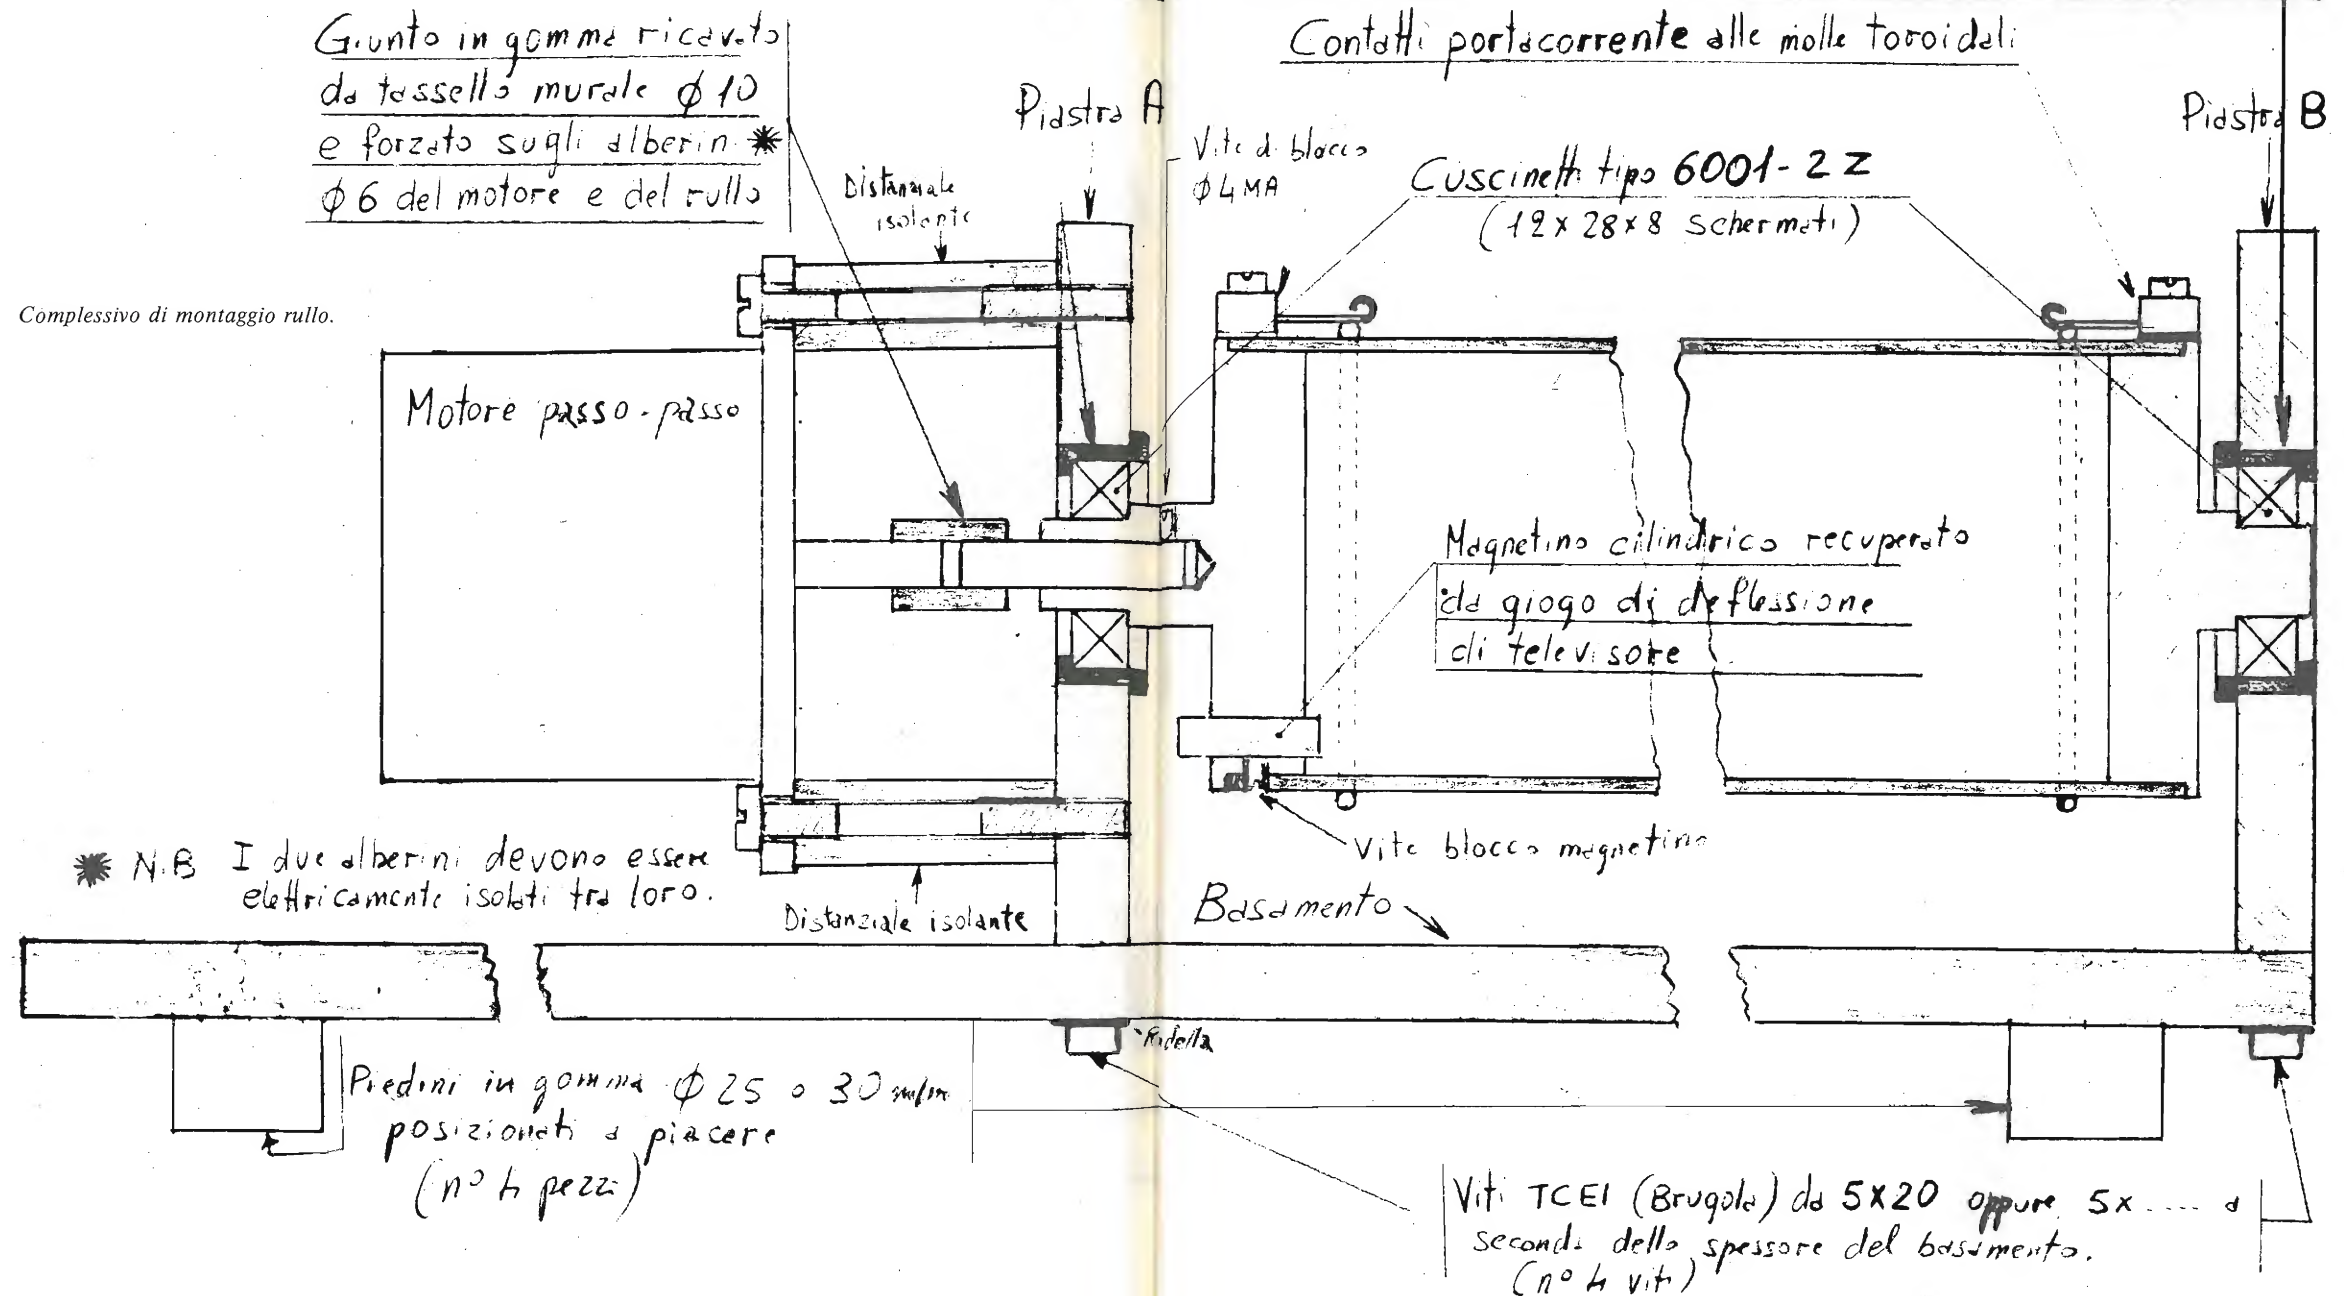 Giunto in gomma ricavato
da tassello murale ϕ 10
e forzato sugli alberin ✹
ϕ 6 del motore e del rullo
Distanziale
isolante
Piastra A
Vite di blocco
ϕ 4 MA
Contatti portacorrente alle molle toroidali
Cuscinetti tipo 6001-2Z
(12x28x8 schermati)
Piastra B
Complessivo di montaggio rullo.
Motore passo-passo
Magnetino cilindrico recuperato
da giogo di deflessione
di televisore
Vite blocco magnetino
✹ N.B I due alberini devono essere
elettricamente isolati tra loro.
Distanziale isolante
Basamento
Piedini in gomma ϕ 25 o 30 m/m
posizionati a piacere
(n° 4 pezzi)
Viti TCEI (Brugola) da 5x20 oppure 5x.... a
seconda dello spessore del basamento.
(n° 4 viti)